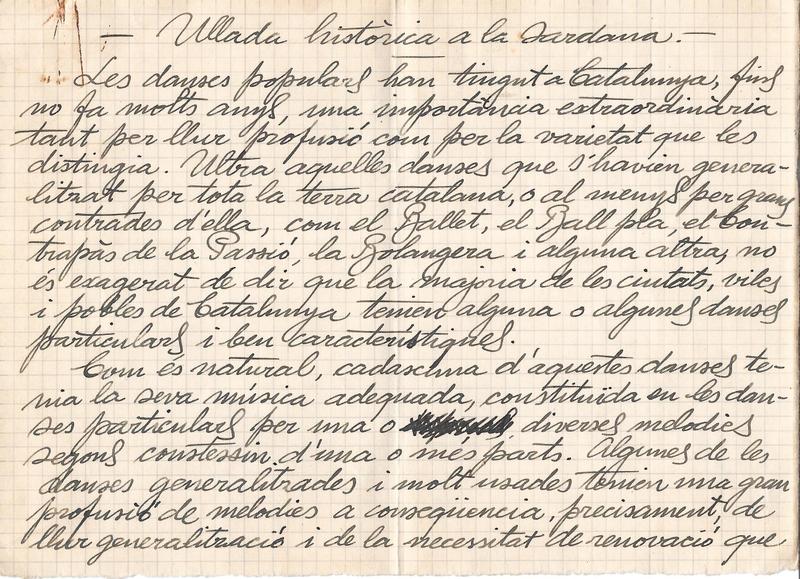 — Ullada històrica a la Sardana. —
Les danses populars han tingut a Catalunya, fins
no fa molts anys, una importància extraordinària
tant per llur profusió com per la varietat que les
distingia. Ultra aquelles danses que s'havien genera-
litzat per tota la terra catalana, o al menys per grans
contrades d'ella, com el Ballet, el Ball pla, el Con-
trapàs de la Passió, la Bolangera i alguna altra, no
és exagerat de dir que la majoria de les ciutats, viles
i pobles de Catalunya tenien alguna o algunes danses
particulars i ben característiques.
Com és natural, cadascuna d'aquestes danses te-
nia la seva música adequada, constituïda en les dan-
ses particulars per una o diverses melodies
segons constessin d'una o més parts. Algunes de les
danses generalitzades i molt usades tenien una gran
profusió de melodies a conseqüencia, precisament, de
llur generalització i de la necessitat de renovació que